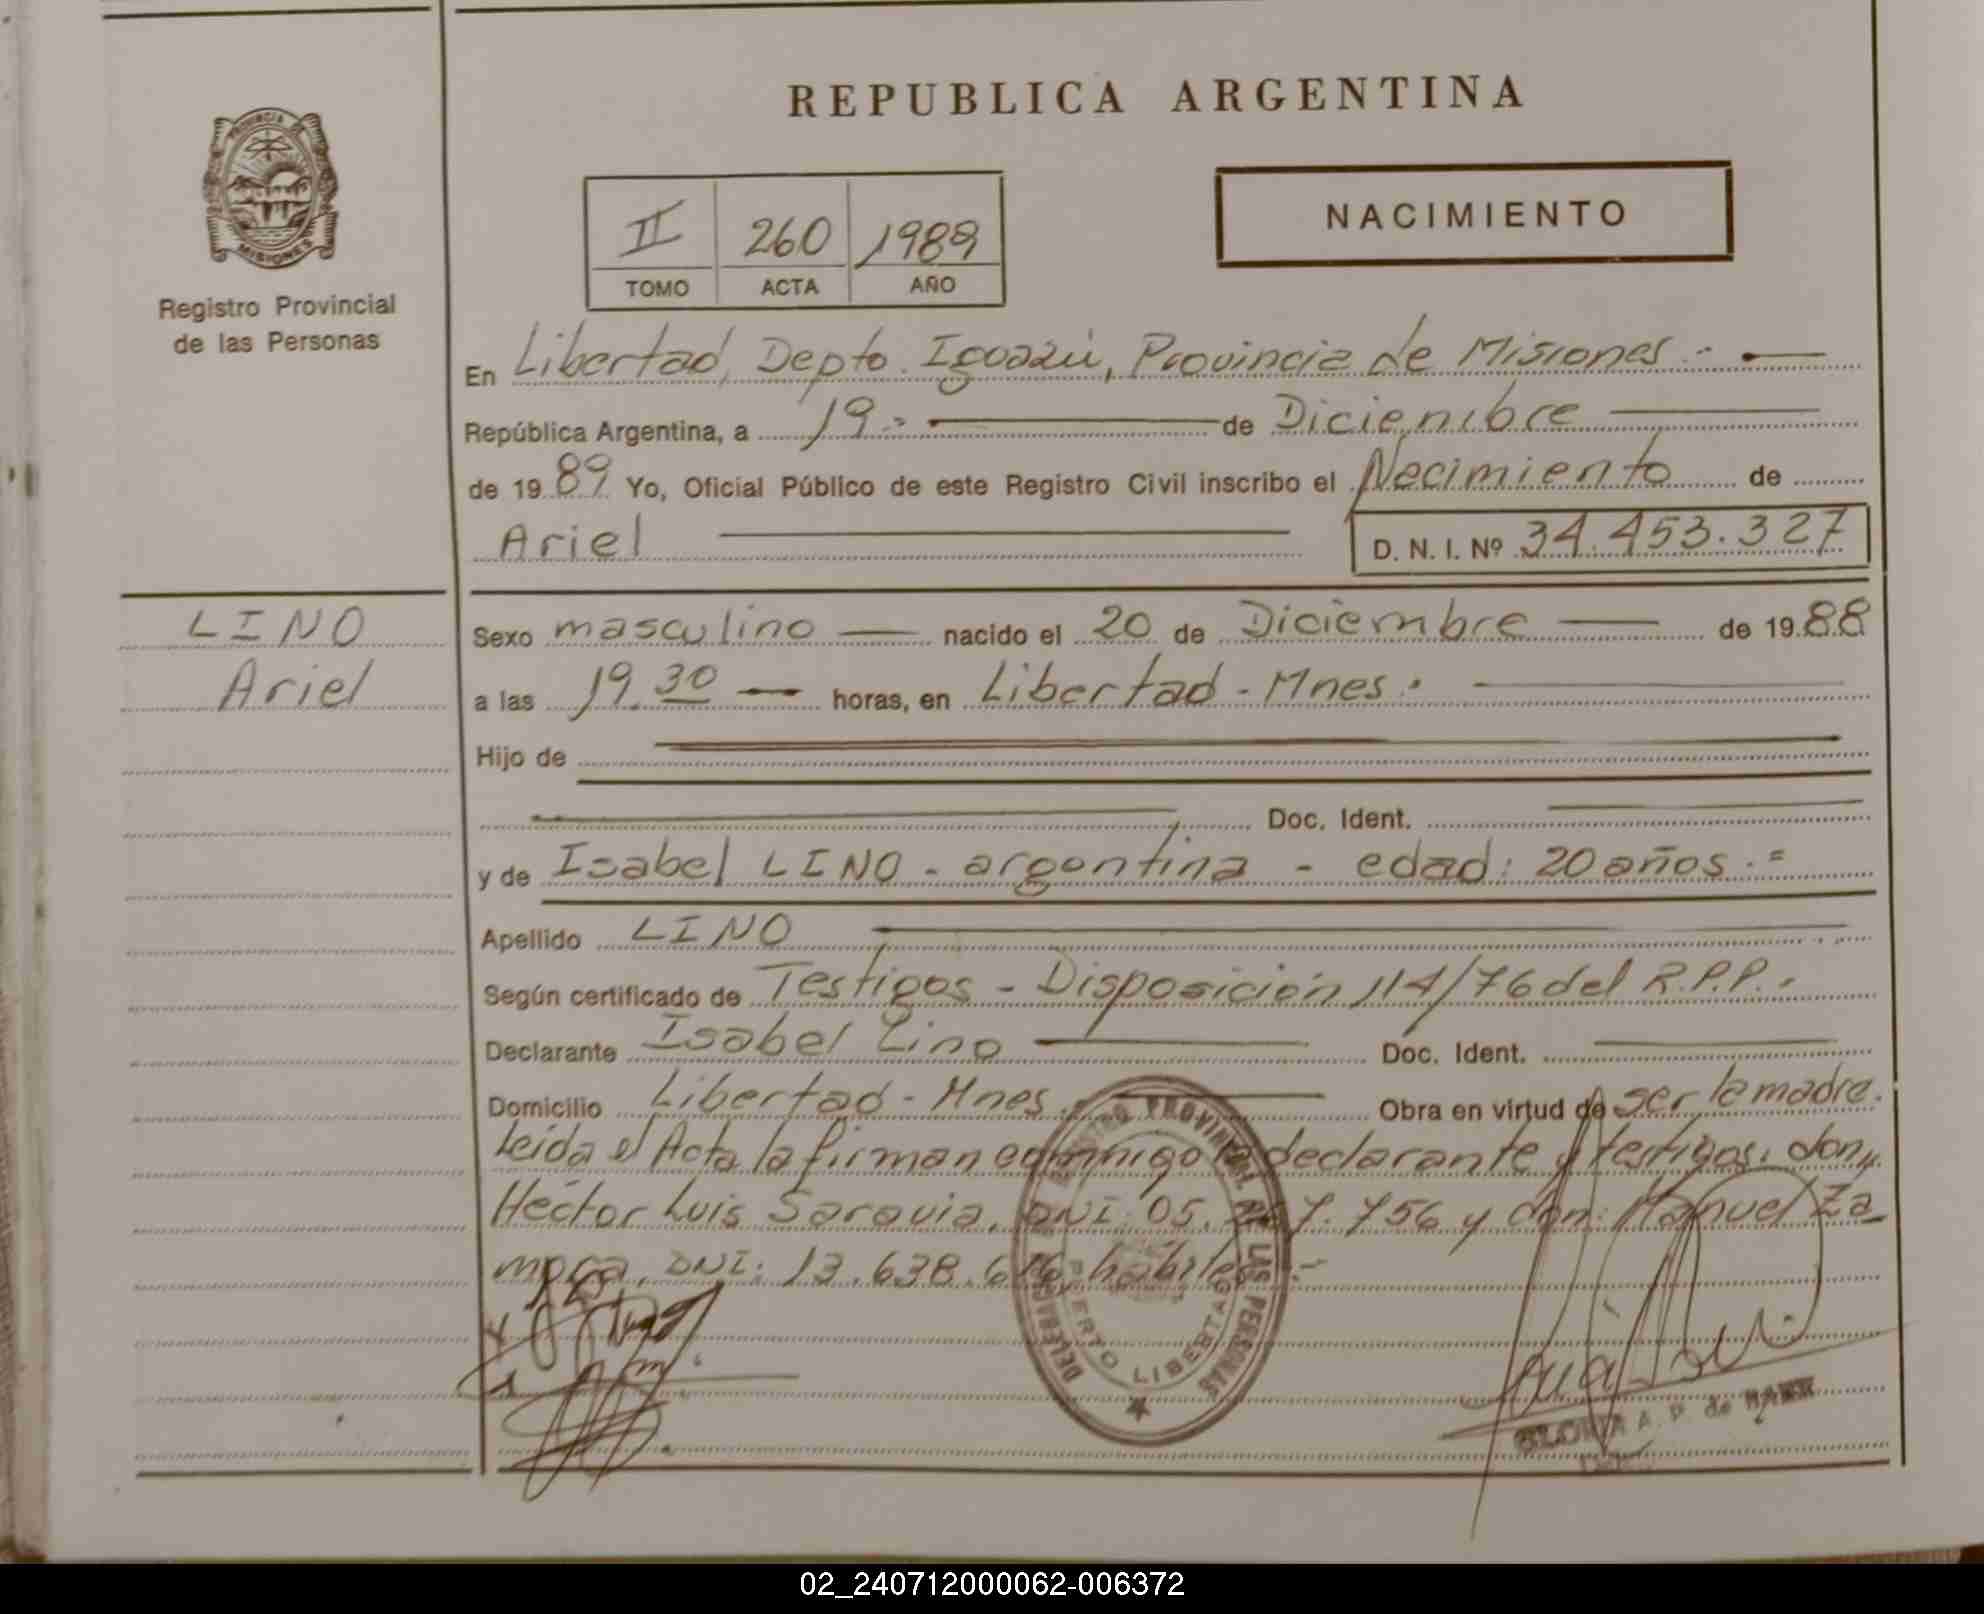 REPUBLICA ARGENTINA
PROVINCIA DE
MISIONES
Registro Provincial
de las Personas
II 260 1989
TOMO ACTA AÑO
NACIMIENTO
En Libertad, Depto. Iguazú, Provincia de Misiones.-
República Argentina, a 19.- de Diciembre
de 1989 Yo, Oficial Público de este Registro Civil inscribo el Nacimiento de
Ariel D. N. I. Nº 34.453.327
LINO
Ariel
Sexo masculino nacido el 20 de Diciembre de 1988
a las 19.30 horas, en Libertad - Mnes.
Hijo de
Doc. Ident.
y de Isabel LINO - argentina - edad: 20 años.=
Apellido LINO
Según certificado de Testigos - Disposición 114/76 del R.P.P.
Declarante Isabel Lino Doc. Ident.
Domicilio Libertad - Mnes. Obra en virtud de ser la madre.
Leída el Acta la firman conmigo declarante y testigos: don
Héctor Luis Saravia, DNI: 05. 756 y don: Manuel Za-
mora, DNI: 13.638. hábiles.-
REGISTRO PROVINCIAL DE LAS PERSONAS
PUERTO LIBERTAD
GLORIA A. P. de
02_240712000062-006372